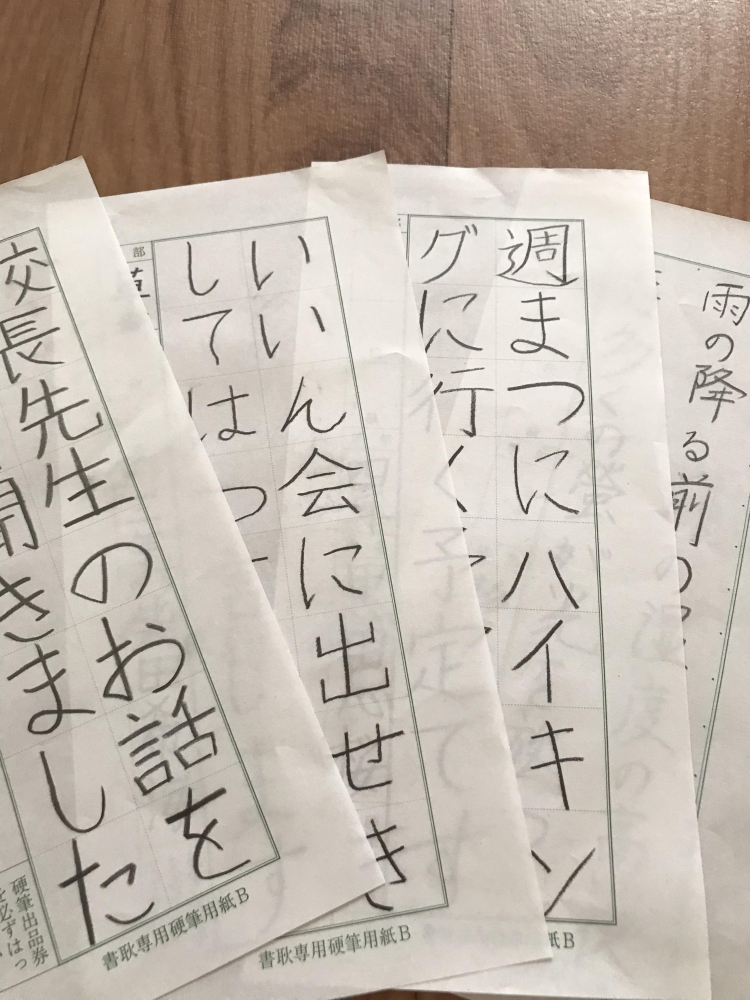 雨の降る前の
週まつにハイキン
グに行く予定です
B
いいん会に出せき
してはっ
部
書耿専用硬筆用紙B
校長先生のお話を
聞きました
硬筆出品券
を必ずはっ
書耿専用硬筆用紙B